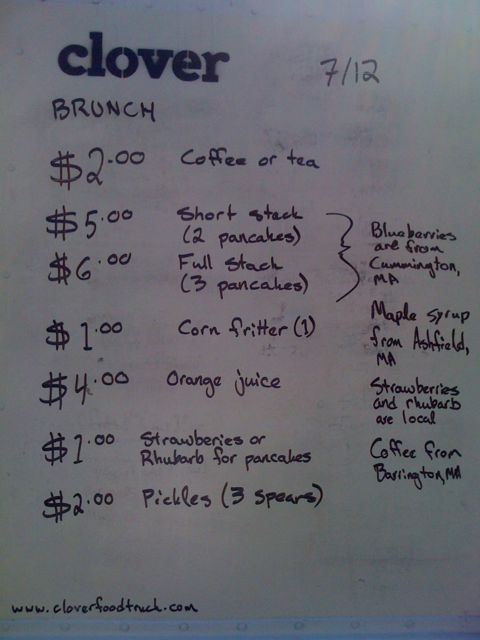 clover
7/12
BRUNCH
$2.00 Coffee or tea
$5.00 Short stack
(2 pancakes)
$6.00 Full Stack
(3 pancakes)
$1.00 Corn fritter (1)
$4.00 Orange juice
$1.00 Strawberies or
Rhubarb for pancakes
$2.00 Pickles (3 spears)
Blueberries
are from
Cummington,
MA
Maple syrup
from Ashfield,
MA
Strawberries
and rhubarb
are local
Coffee from
Barrington, MA
www.cloverfoodtruck.com